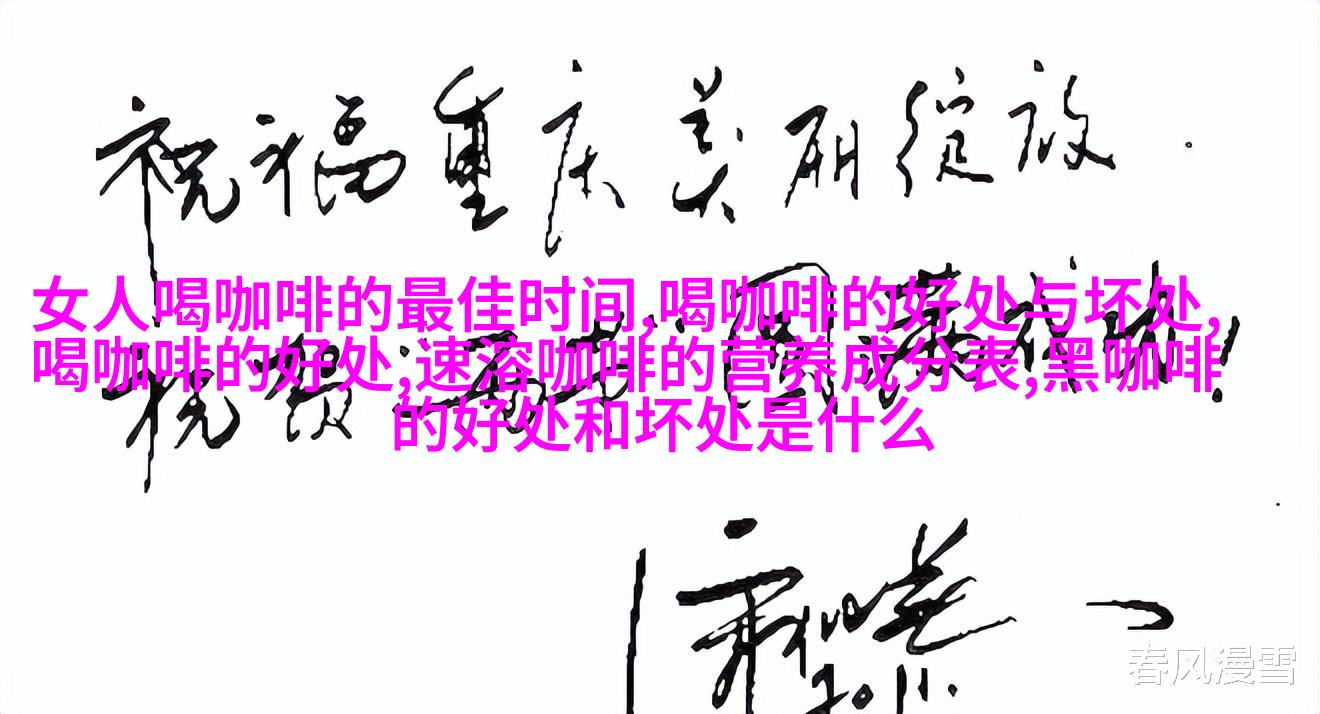 祝福重庆美丽绽放.
女人喝咖啡的最佳时间,喝咖啡的好处与坏处,
喝咖啡的好处,速溶咖啡的营养成分表,黑咖啡
的好处和坏处是什么
2011.
春风漫雪